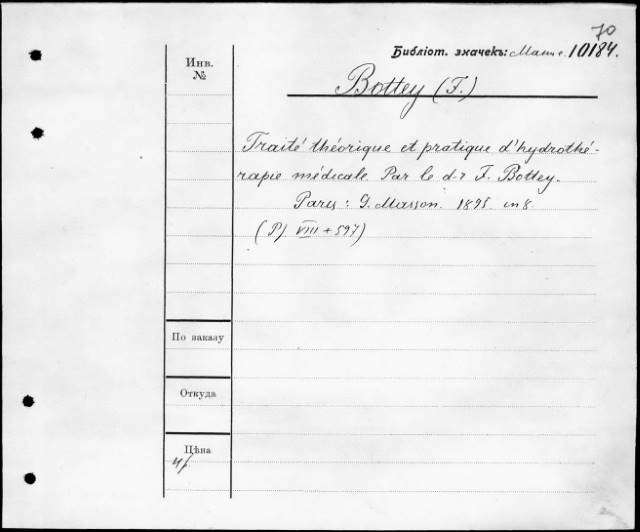 70
Библіот. значекъ: 10184.
Инв.
№
Bottey (F.)
Traité théorique et pratique d'hydrothé-
rapie médicale. Par le d-r F. Bottey.
Paris: G. Masson. 1895. in 8.
(P) VIII + 597)
По заказу
Откуда
Цѣна